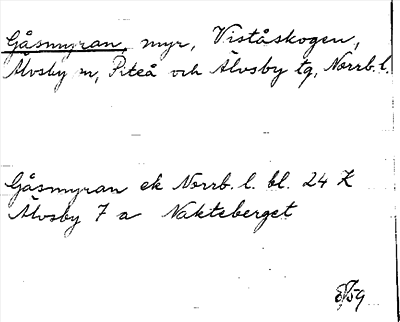 Gåsmyran, myr, Viståskogen,
Älvsby sn, Piteå och Älvsby tg, Norrb. l.
Gåsmyran ek Norrb. l. bl. 24 K
Älvsby 7 a Nakteberget